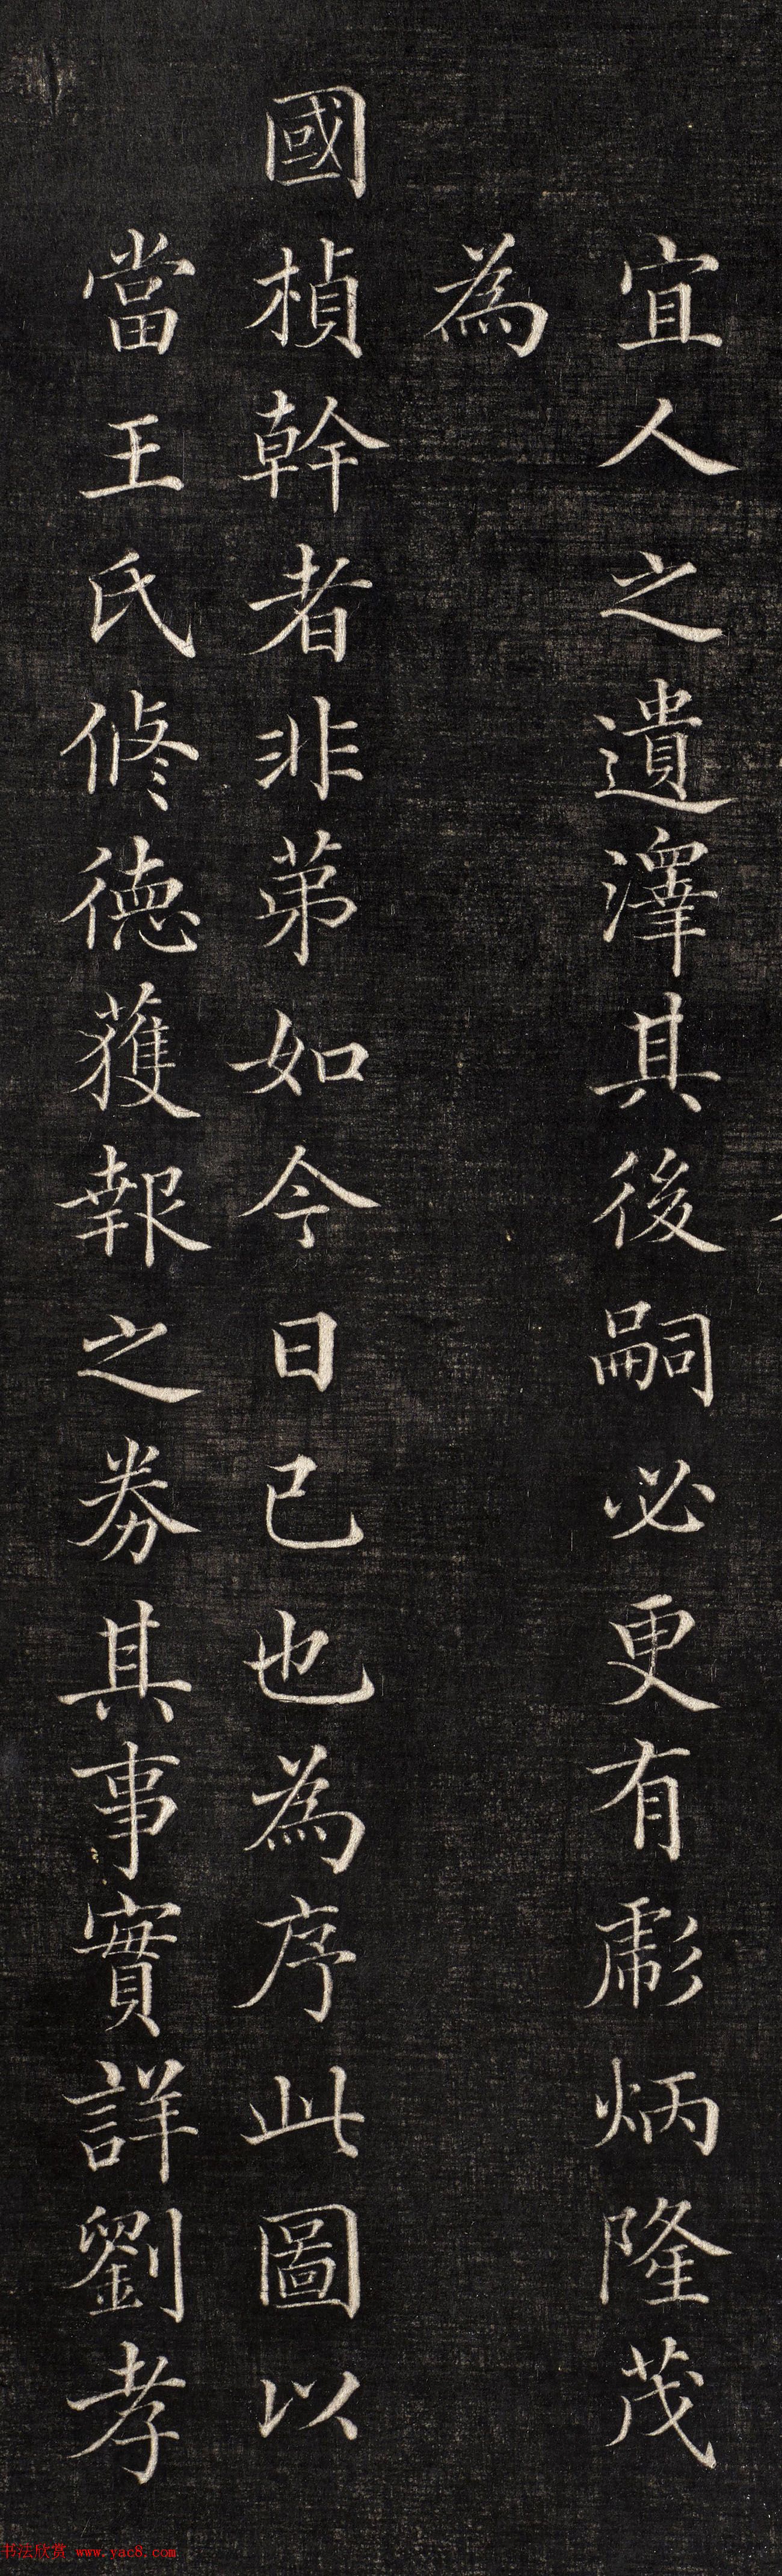 宜人之遺澤其後嗣必更有彪炳隆茂
為
國楨幹者非苐如今日已也為序此圖以
當王氏脩德獲報之券其事實詳劉孝
书法欣赏 www.yac8.com